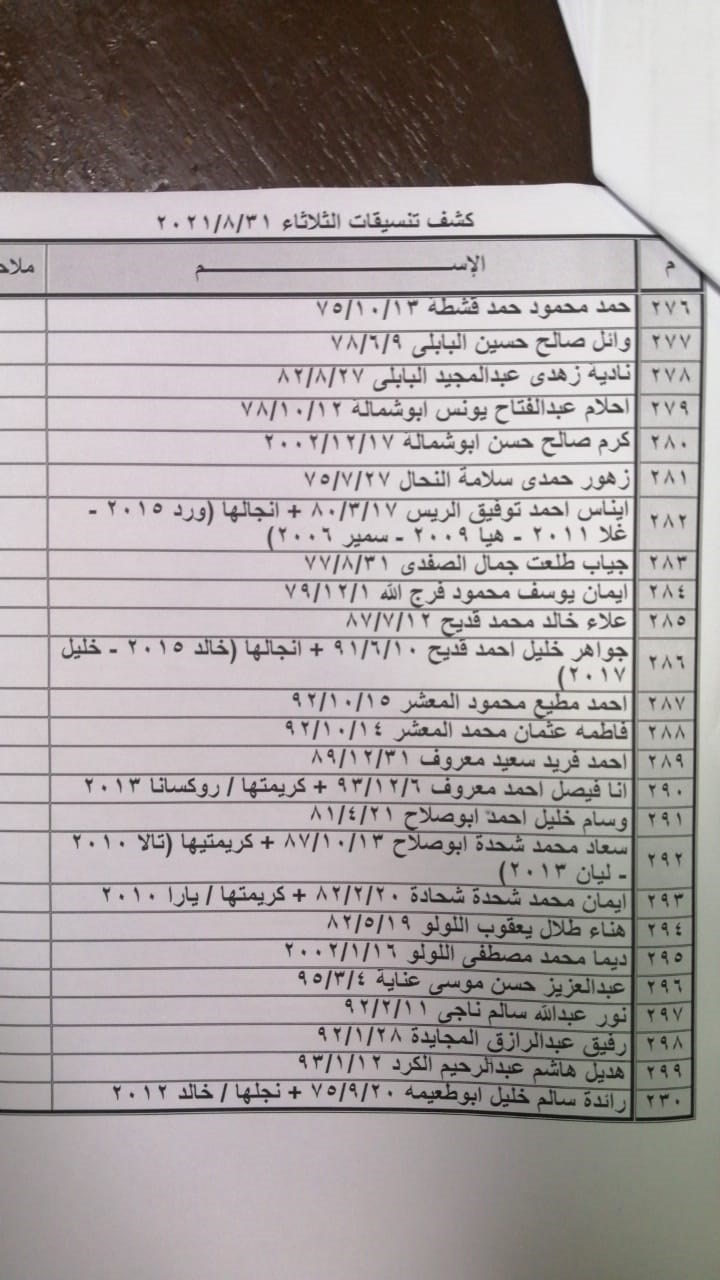 كشف تنسيقات الثلاثاء ٢٠٢١/٨/٣١
م الإســـــــــــــم
٢٧٦ حمد محمود حمد قشطة ٧٥/١٠/١٣
٢٧٧ وائل صالح حسين البابلى ٧٨/٦/٩
٢٧٨ نادية زهدى عبدالمجيد البابلى ٨٢/٨/٢٧
٢٧٩ احلام عبدالفتاح يونس ابوشمالة ٧٨/١٠/١٢
٢٨٠ كرم صالح حسن ابوشمالة ٢٠٠٢/١٢/١٧
٢٨١ زهور حمدى سلامة النحال ٧٥/٧/٢٧
٢٨٢ ايناس احمد توفيق الريس ٨٠/٣/١٧ + انجالها (ورد ٢٠١٥ -
غلا ٢٠١١ - هيا ٢٠٠٩ - سمير ٢٠٠٦)
٢٨٣ جياب طلعت جمال الصفدى ٧٧/٨/٣١
٢٨٤ ايمان يوسف محمود فرج الله ٧٩/١٢/١
٢٨٥ علاء خالد محمد قديح ٨٧/٧/١٢
٢٨٦ جواهر خليل احمد قديح ٩١/٦/١٠ + انجالها (خالد ٢٠١٥ - خليل
٢٠١٧)
٢٨٧ احمد مطيع محمود المعشر ٩٢/١٠/١٥
٢٨٨ فاطمه عثمان محمد المعشر ٩٢/١٠/١٤
٢٨٩ احمد فريد سعيد معروف ٨٩/١٢/٣١
٢٩٠ انا فيصل احمد معروف ٩٣/١٢/٦ + كريمتها / روكسانا ٢٠١٣
٢٩١ وسام خليل احمد ابوصلاح ٨١/٤/٢١
٢٩٢ سعاد محمد شحدة ابوصلاح ٨٧/١٠/١٣ + كريمتيها (تالا ٢٠١٠
- ليان ٢٠١٣)
٢٩٣ ايمان محمد شحدة شحادة ٨٢/٢/٢٠ + كريمتها / يارا ٢٠١٠
٢٩٤ هناء طلال يعقوب اللولو ٨٢/٥/١٩
٢٩٥ ديما محمد مصطفى اللولو ٢٠٠٢/١/١٦
٢٩٦ عبدالعزيز حسن موسى عناية ٩٥/٣/٤
٢٩٧ نور عبدالله سالم ناجى ٩٢/٢/١١
٢٩٨ رفيق عبدالرازق المجايدة ٩٢/١/٢٨
٢٩٩ هديل هاشم عبدالرحيم الكرد ٩٣/١/١٢
٢٣٠ رائدة سالم خليل ابوطعيمه ٧٥/٩/٢٠ + نجلها / خالد ٢٠١٢